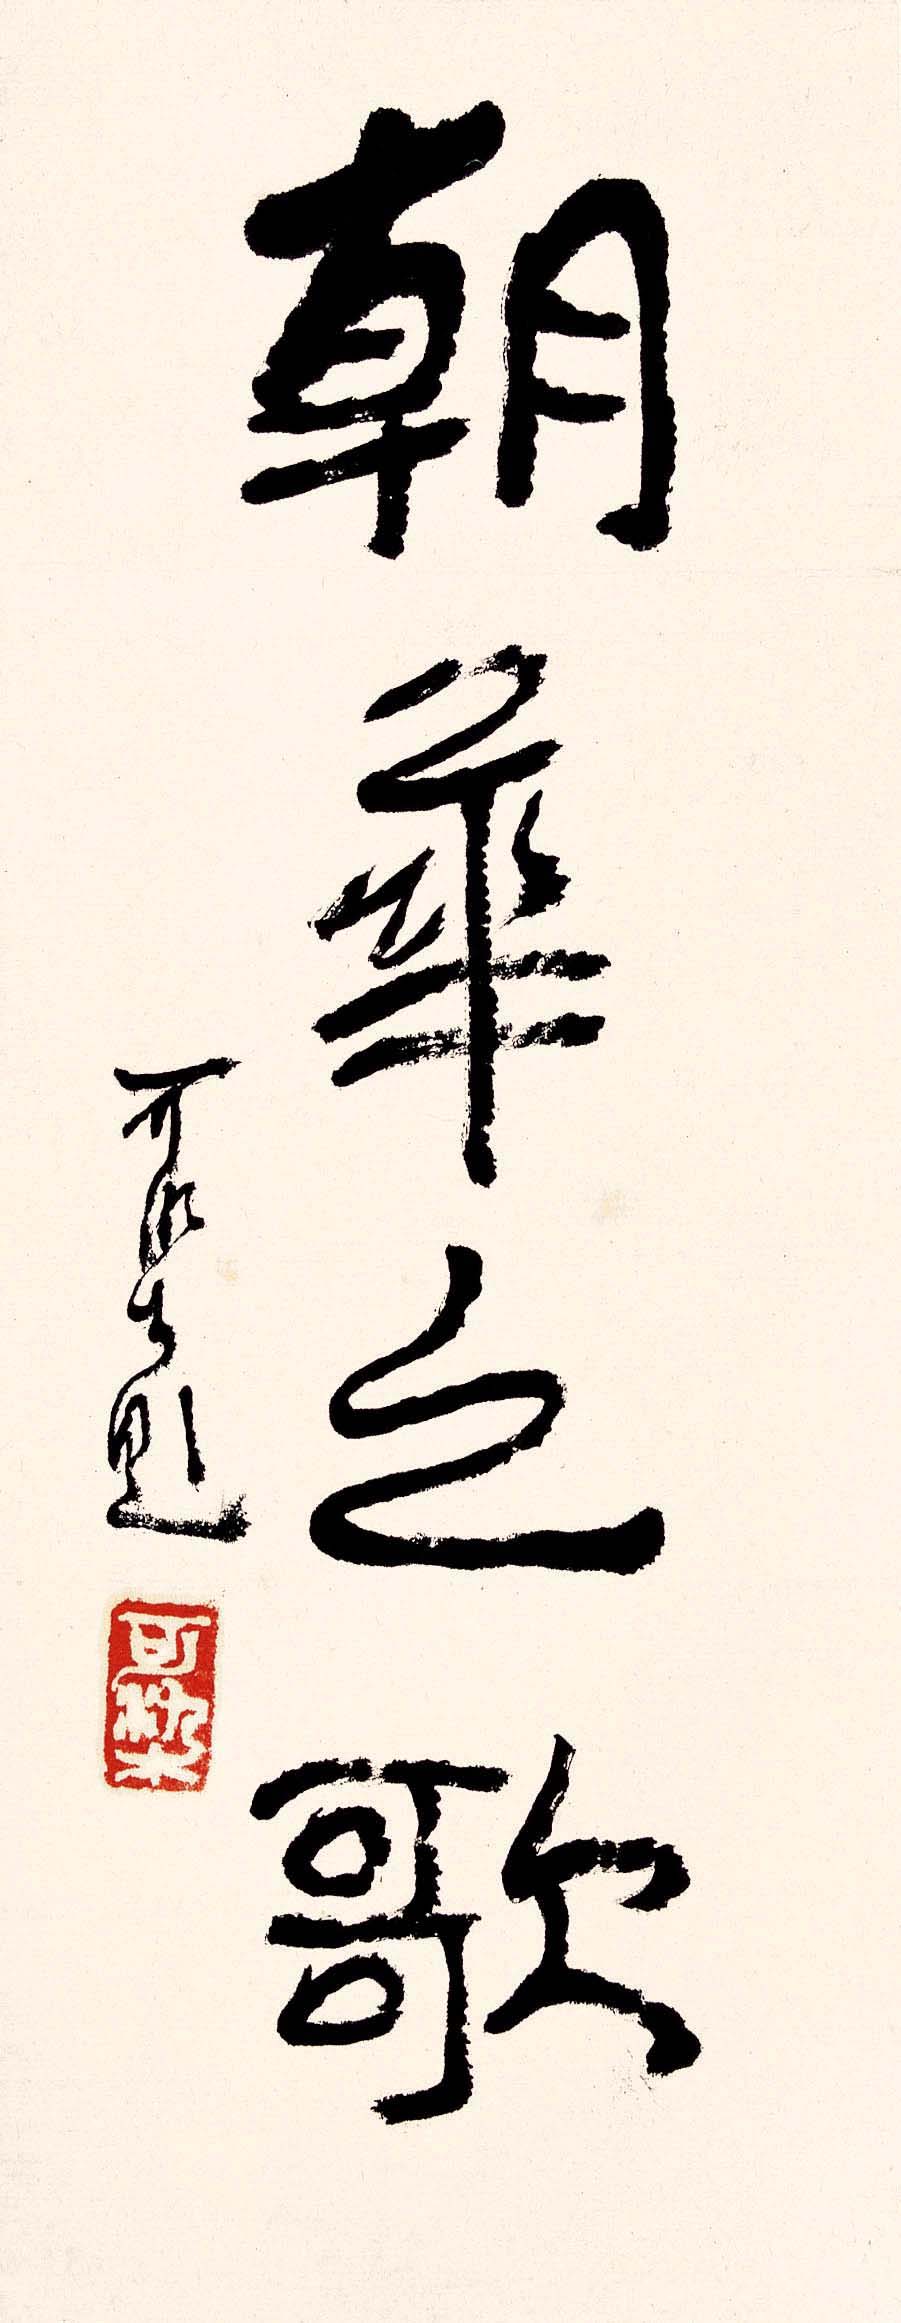 朝華之歌
可染題
可染